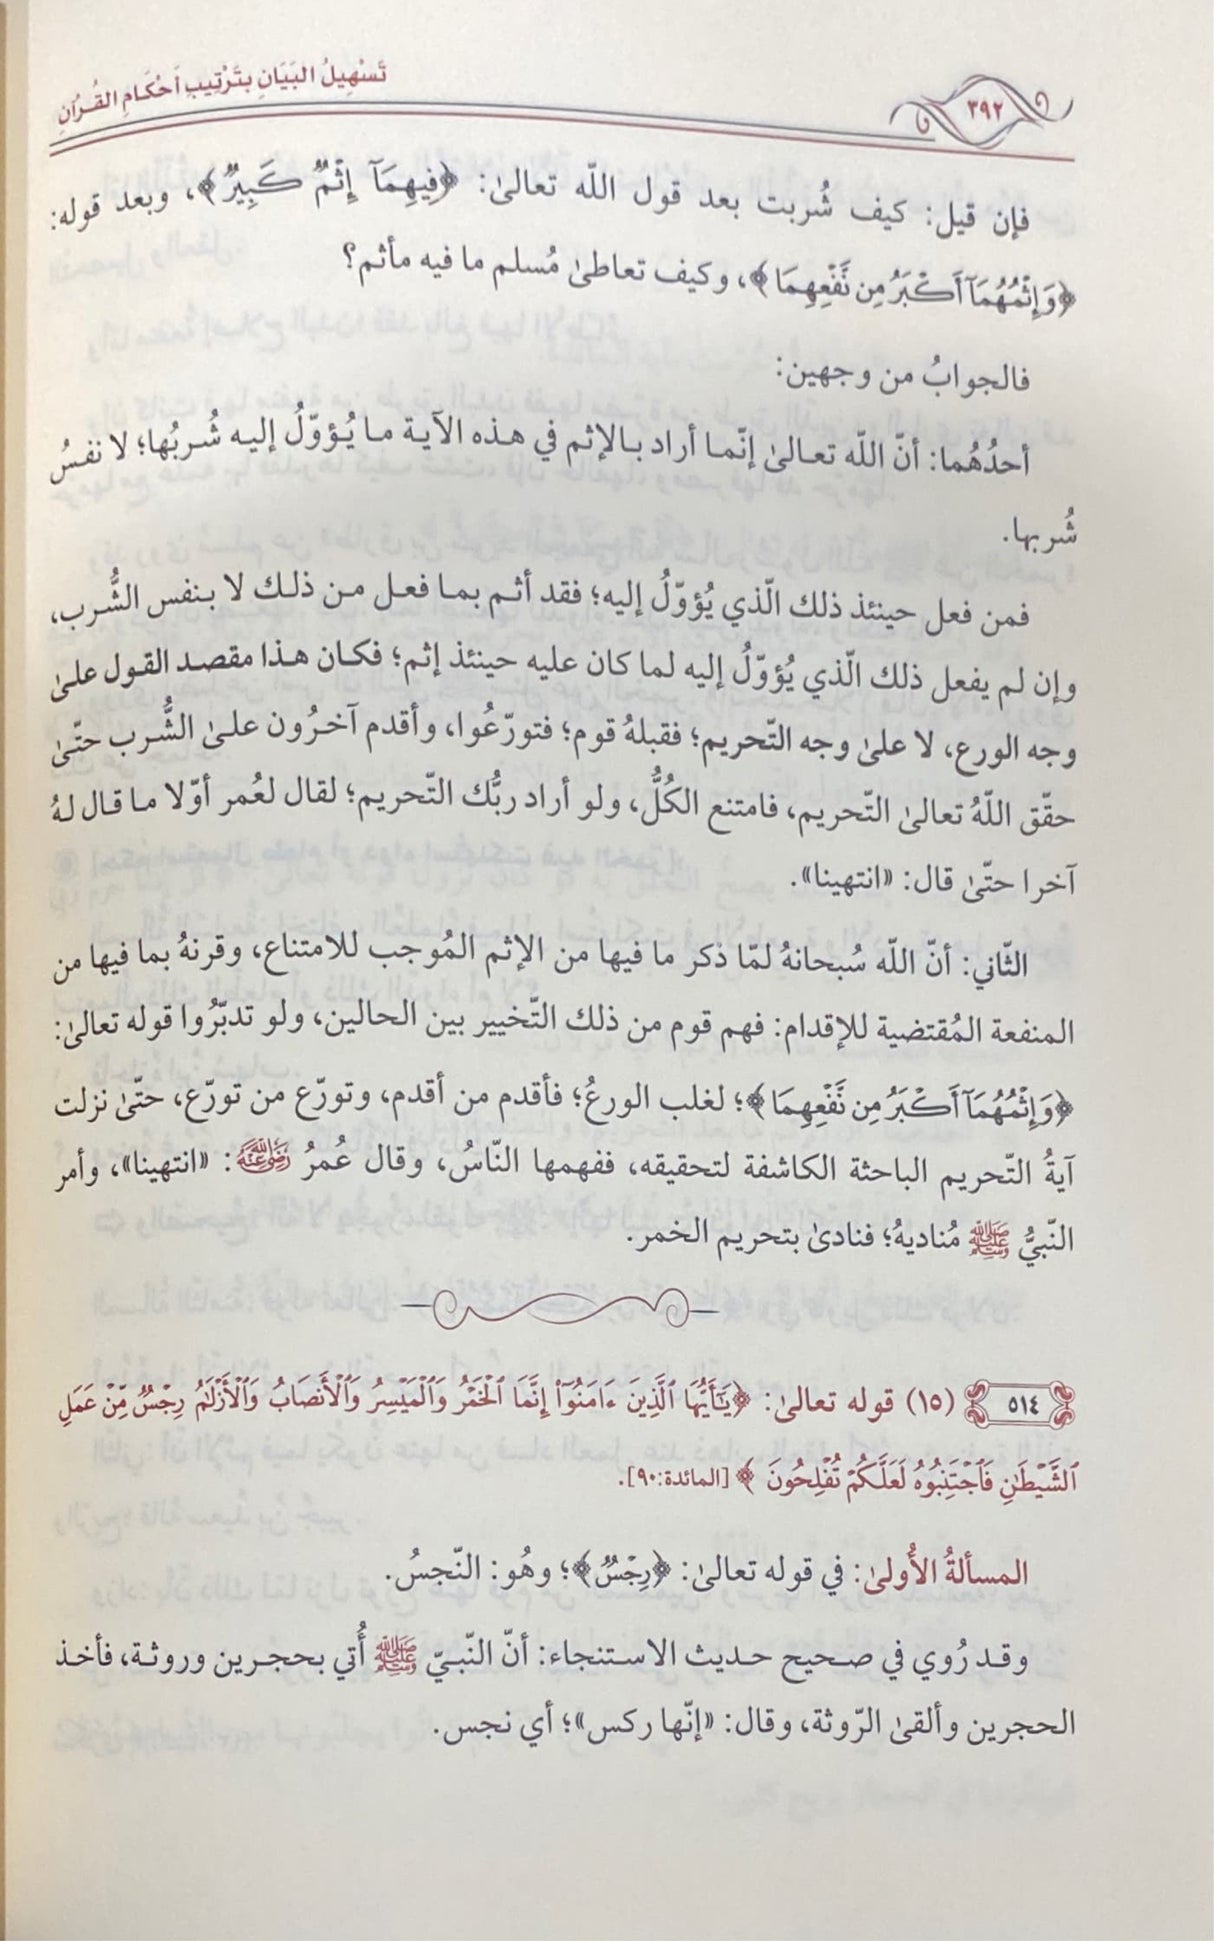 تَسْهِيلُ البَيَانِ بتَرْتِيبِ أَحْكَامِ القُرْآنِ
٣٩٢
فإن قيل: كيف شُربت بعد قول اللّه تعالىٰ: ﴿فِيهِمَآ إِثْمٌ كَبِيرٌ﴾، وبعد قوله:
﴿وَإِثْمُهُمَآ أَكْبَرُ مِن نَّفْعِهِمَا﴾، وكيف تعاطىٰ مُسلم ما فيه مأثم؟
فالجوابُ من وجهين:
أحدُهُما: أنّ اللّه تعالىٰ إنّما أراد بالإثم في هذه الآية ما يُؤوّلُ إليه شُربُها؛ لا نفسُ
شُربها.
فمن فعل حينئذ ذلك الّذي يُؤوّلُ إليه؛ فقد أثم بما فعل من ذلك لا بنفس الشُّرب،
وإن لم يفعل ذلك الّذي يُؤوّلُ إليه لما كان عليه حينئذ إثم؛ فكان هذا مقصد القول علىٰ
وجه الورع، لا علىٰ وجه التّحريم؛ فقبلهُ قوم؛ فتورّعُوا، وأقدم آخرُون علىٰ الشُّرب حتّىٰ
حقّق اللّهُ تعالىٰ التّحريم، فامتنع الكُلُّ، ولو أراد ربُّك التّحريم؛ لقال لعُمر أوّلا ما قال لهُ
آخرا حتّىٰ قال: «انتهينا».
الثّاني: أنّ اللّه سُبحانهُ لمّا ذكر ما فيها من الإثم المُوجب للامتناع، وقرنهُ بما فيها من
المنفعة المُقتضية للإقدام: فهم قوم من ذلك التّخيير بين الحالين، ولو تدبّرُوا قوله تعالىٰ:
﴿وَإِثْمُهُمَآ أَكْبَرُ مِن نَّفْعِهِمَا﴾؛ لغلب الورعُ؛ فأقدم من أقدم، وتورّع من تورّع، حتّىٰ نزلت
آيةُ التّحريم الباحثة الكاشفة لتحقيقه، ففهمها النّاسُ، وقال عُمرُ رضي الله عنه: «انتهينا»، وأمر
النّبيُّ ﷺ مُناديهُ؛ فنادىٰ بتحريم الخمر.
٥١٤ (١٥) قوله تعالىٰ: ﴿يَٰٓأَيُّهَا ٱلَّذِينَ ءَامَنُوٓا۟ إِنَّمَا ٱلْخَمْرُ وَٱلْمَيْسِرُ وَٱلْأَنصَابُ وَٱلْأَزْلَٰمُ رِجْسٌ مِّنْ عَمَلِ
ٱلشَّيْطَٰنِ فَٱجْتَنِبُوهُ لَعَلَّكُمْ تُفْلِحُونَ ﴾ [المائدة:٩٠].
المسألةُ الأُولىٰ: في قوله تعالىٰ: ﴿رِجْسٌ﴾؛ وهُو: النّجسُ.
وقد رُوي في صحيح حديث الاستنجاء: أنّ النّبيّ ﷺ أُتي بحجرين وروثة، فأخذ
الحجرين وألقىٰ الرّوثة، وقال: «إنّها ركس»؛ أي نجس.